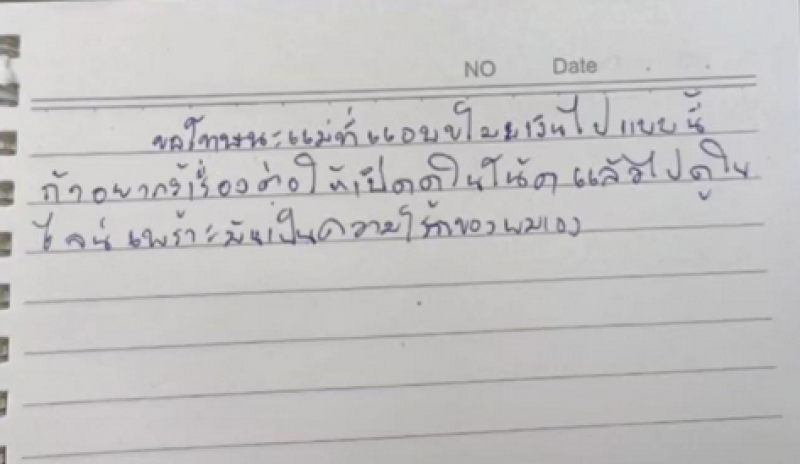 NO Date
ขอโทษนะแม่ที่แอบขโมยเงินไปแบบนี้
ถ้าอยากรู้เรื่องต่อให้เปิดดูในโน้ต แล้วไปดูใน
ไลน์ เพราะมันเป็นความรักของผมเอง